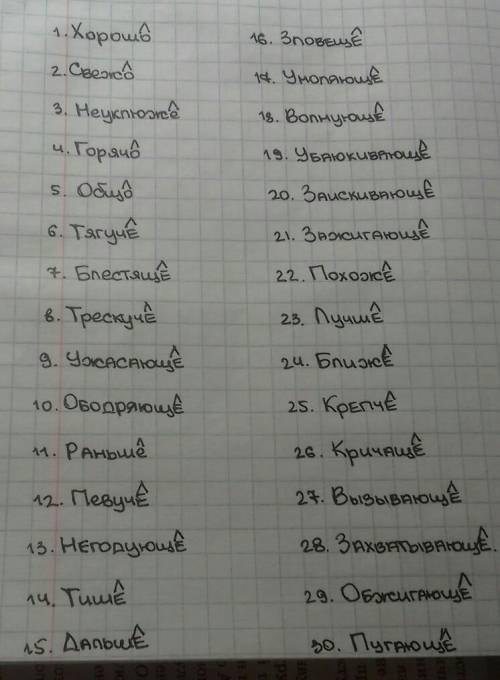 1. Хорошо
2. Свежо
3. Неуклюже
4. Горячо
5. Общо
6. Тягуче
7. Блестяще
8. Трескуче
9. Ужасающе
10. Ободряюще
11. Раньше
12. Певуче
13. Негодующе
14. Тише
15. Дальше
16. Зловеще
17. Умоляюще
18. Волнующе
19. Убаюкивающе
20. Заискивающе
21. Зажигающе
22. Похоже
23. Лучше
24. Ближе
25. Крепче
26. Кричаще
27. Вызывающе
28. Захватывающе.
29. Обжигающе
30. Пугающе